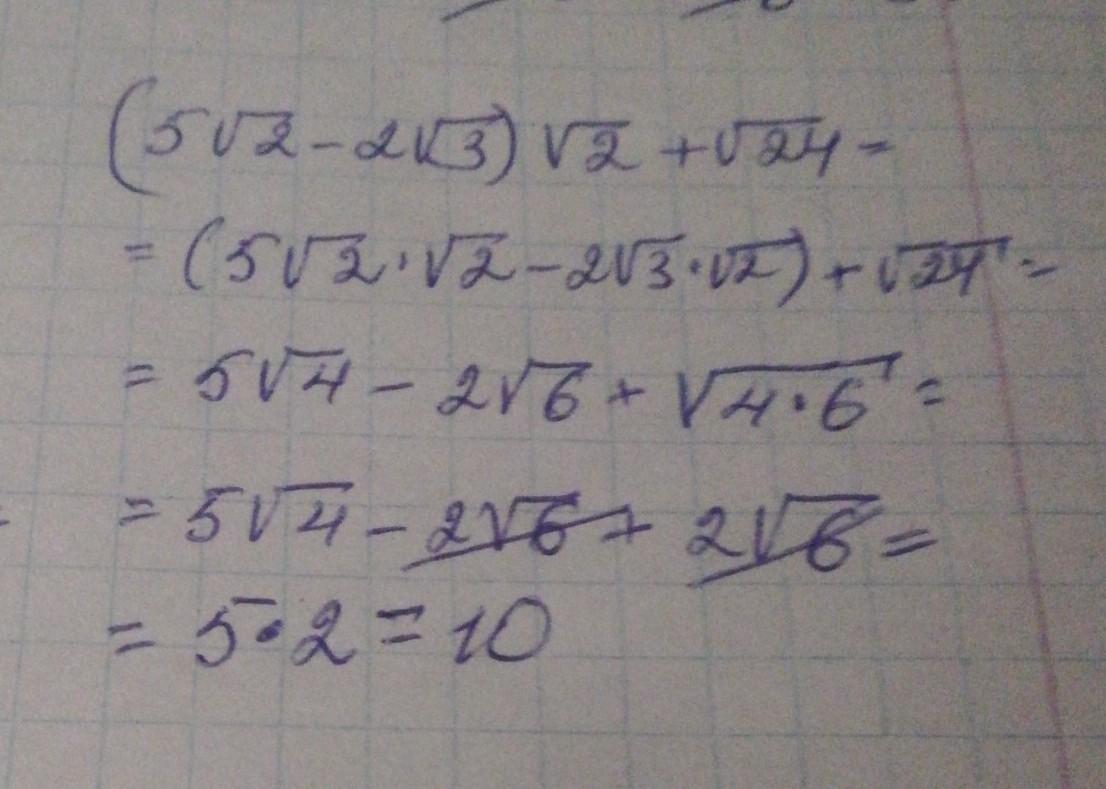 (5√2 - 2√3) √2 + √24 =
= (5√2 · √2 - 2√3 · √2) + √24 =
= 5√4 - 2√6 + √4·6 =
= 5√4 - 2√6 + 2√6 =
= 5·2 = 10